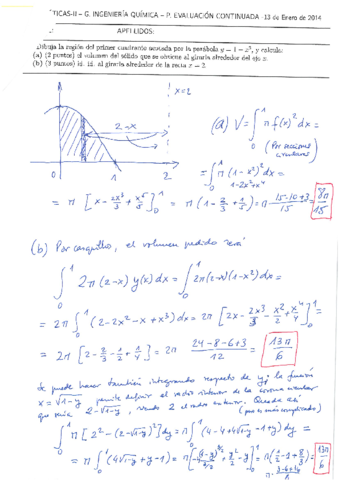 TICAS-II - G. INGENIERÍA QUÍMICA - P. EVALUACIÓN CONTINUADA -13 de Enero de 2014
APELLIDOS:
Dibuja la región del primer cuadrante acotada por la parábola y = 1 − x², y calcula:
(a) (2 puntos) el volumen del sólido que se obtiene al girarla alrededor del eje x.
(b) (3 puntos) id. id. al girarla alrededor de la recta x = 2
x=2
2-x
0 1 2
(a) V = ∫₀¹ π f(x)² dx =
(Por secciones circulares)
= ∫₀¹ π (1-x²)² dx
1-2x²+x⁴
= π [x - 2x³/3 + x⁵/5]₀¹ = π (1 - 2/3 + 1/5) = π · (15-10+3)/15 = 8π/15
(b) Por casquillos, el volumen pedido será
∫₀¹ 2π(2-x) y(x) dx = ∫₀¹ 2π(2-x)(1-x²) dx =
= 2π ∫₀¹ (2-2x²-x+x³) dx = 2π [2x - 2x³/3 - x²/2 + x⁴/4]₀¹ =
= 2π [2 - 2/3 - 1/2 + 1/4] = 2π (24-8-6+3)/12 = 13π/6
Se puede hacer también integrando respecto de y; la función
x = √(1-y) permite definir el radio interior de la corona circular
que sería 2-√(1-y), siendo 2 el radio exterior. Queda así
(pero es más complicado)
∫₀¹ π [2² - (2-√(1-y))²] dy = ∫₀¹ π (4-4+4√(1-y) -1+y) dy =
= π ∫₀¹ (4√(1-y) + y - 1) = π [ -4(1-y)^(3/2)/(3/2) + y²/2 - y ]₀¹ = π (1/2 - 1 + 8/3) = 13π/6
π · (3-6+16)/6